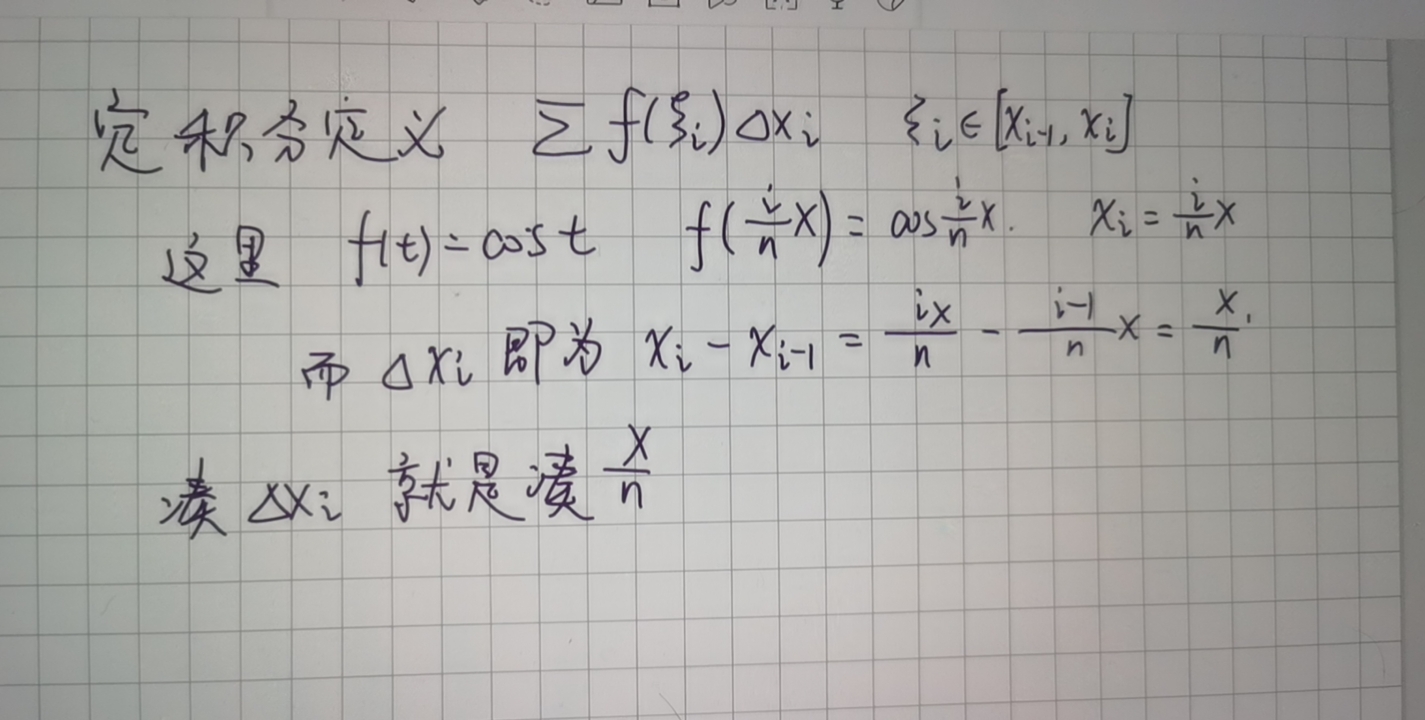 定积分定义 Σ f(ξi)Δxi ξi∈[xi-1, xi]
这里 f(t)=cos t f(i/n x)=cos i/n x. xi=i/n x
而 Δxi 即为 xi-xi-1=ix/n-i-1/n x=x/n.
凑 Δxi 就是凑 x/n